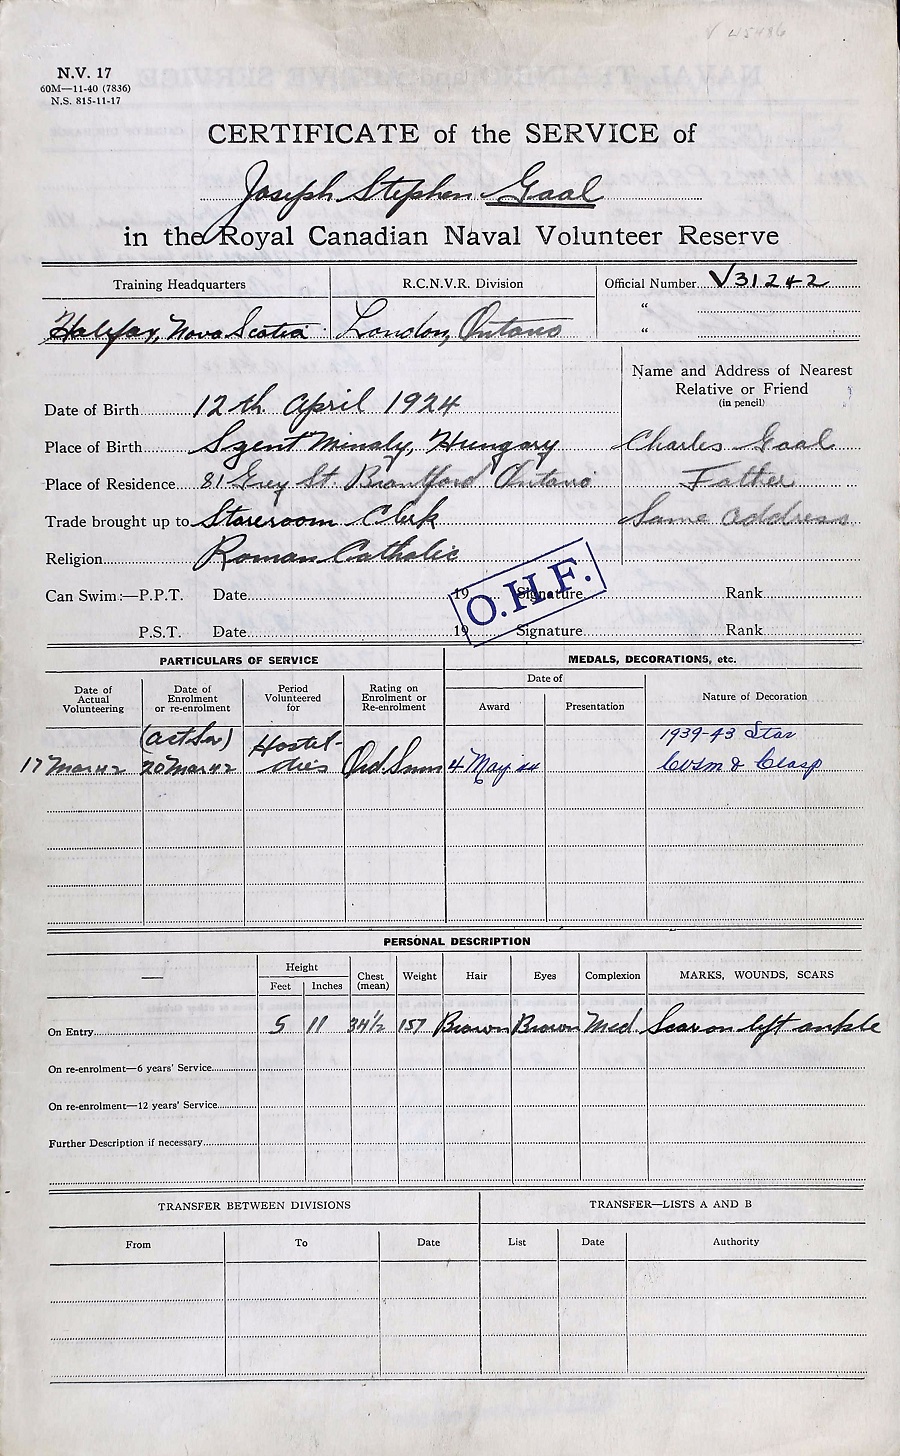 V 45486
N.V. 17
60M—11-40 (7836)
N.S. 815-11-17
CERTIFICATE of the SERVICE of
Joseph Stephen Gaal
in the Royal Canadian Naval Volunteer Reserve
Training Headquarters
Halifax, Nova Scotia
R.C.N.V.R. Division
London, Ontario
Official Number V31242
"
"
Date of Birth 12th April 1924
Place of Birth Szent Minaly, Hungary
Place of Residence 81 Grey St. Brantford Ontario
Trade brought up to Storeroom Clerk
Religion Roman Catholic
Name and Address of Nearest
Relative or Friend
(in pencil)
Charles Gaal
Father
Same address
Can Swim:—P.P.T. Date 19 Signature Rank
P.S.T. Date 19 Signature Rank
O.H.F.
PARTICULARS OF SERVICE
MEDALS, DECORATIONS, etc.
Date of
Actual
Volunteering
Date of
Enrolment
or re-enrolment
Period
Volunteered
for
Rating on
Enrolment or
Re-enrolment
Date of
Award
Presentation
Nature of Decoration
17 Mar 42
(Act Ser)
20 Mar 42
Hostil-
ities
Ord Smn
4 May 44
1939-43 Star
CVSM & Clasp
PERSONAL DESCRIPTION
—
Height
Feet
Inches
Chest
(mean)
Weight
Hair
Eyes
Complexion
MARKS, WOUNDS, SCARS
On Entry 5 11 34½ 157 Brown Brown Med. Scar on left ankle
On re-enrolment—6 years' Service
On re-enrolment—12 years' Service
Further Description if necessary
TRANSFER BETWEEN DIVISIONS
TRANSFER—LISTS A AND B
From
To
Date
List
Date
Authority